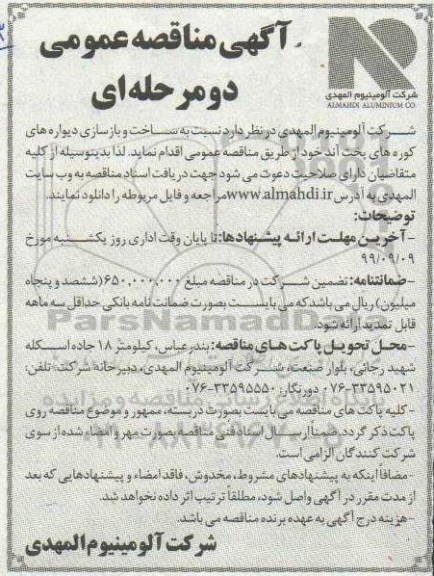 آگهی مناقصه عمومی
دو مرحله‌ای
شرکت آلومینیوم المهدی
ALMAHDI ALUMINIUM CO.
شرکت آلومینیوم المهدی در نظر دارد نسبت به ساخت و بازسازی دیواره های
کوره های پخت آند خود از طریق مناقصه عمومی اقدام نماید. لذا بدینوسیله از کلیه
متقاضیان دارای صلاحیت دعوت می شود جهت دریافت اسناد مناقصه به وب سایت
المهدی به آدرس www.almahdi.ir مراجعه و فایل مربوطه را دانلود نمایند.
توضیحات:
-آخرین مهلت ارائه پیشنهادها: تا پایان وقت اداری روز یکشنبه مورخ
۹۹/۰۹/۰۹
-ضمانتنامه: تضمین شرکت در مناقصه مبلغ ۶۵۰,۰۰۰,۰۰۰ (ششصد و پنجاه
میلیون) ریال می باشد که می بایست بصورت ضمانت نامه بانکی حداقل سه ماهه
قابل تمدید ارائه شود.
-محل تحویل پاکت های مناقصه: بندرعباس، کیلومتر ۱۸ جاده اسکله
شهید رجائی، بلوار صنعت، شرکت آلومینیوم المهدی، دبیرخانه شرکت؛ تلفن:
۰۷۶-۳۳۵۹۵۰۲۱ دورنگار: ۰۷۶-۳۳۵۹۵۵۵۰
-کلیه پاکت های مناقصه می بایست بصورت دربسته، ممهور و موضوع مناقصه روی
پاکت ذکر گردد. ضمناً ارسال اسناد فنی مناقصه بصورت مهر و امضاء شده از سوی
شرکت کنندگان الزامی است.
-مضافاً اینکه به پیشنهادهای مشروط، مخدوش، فاقد امضاء و پیشنهادهایی که بعد
از مدت مقرر در آگهی واصل شود، مطلقاً ترتیب اثر داده نخواهد شد.
-هزینه درج آگهی به عهده برنده مناقصه می باشد.
شرکت آلومینیوم المهدی
ParsNamadData
پایگاه اطلاع رسانی مناقصه و مزایده